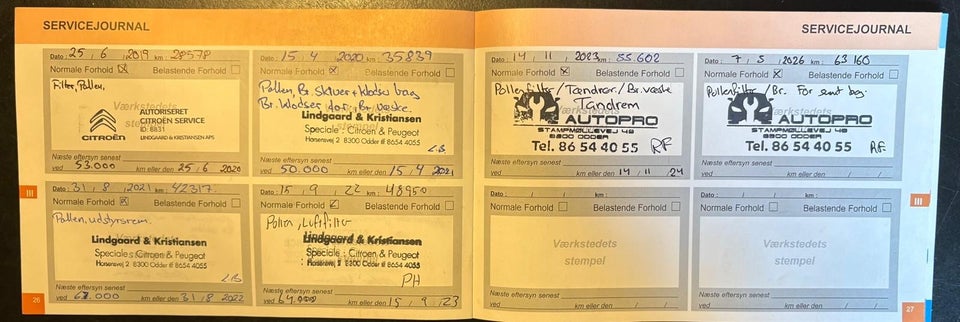 SERVICEJOURNAL
Dato : 25 , 6 , 2019 km : 28578
Normale Forhold Belastende Forhold
Filter, Pollen,
Værkstedets
AUTORISERET
CITROËN SERVICE
ID: 8831
LINDGAARD & KRISTIANSEN APS
CITROËN
Næste eftersyn senest
ved 53.000 km eller den 25 , 6 , 2020
Dato : 15 , 4 , 2020 km : 35839
Normale Forhold Belastende Forhold
Pollen, Br. Skiver + klodser bag
Br. klodser for. Br. væske.
Lindgaard & Kristiansen
Speciale : Citroën & Peugeot
Horsensvej 2 8300 Odder tlf 8654 4055
L.B
Næste eftersyn senest
ved 50.000 km eller den 15 , 4 , 2021
Dato : 31 , 8 , 2021 km : 42317.
Normale Forhold Belastende Forhold
Pollen, udstyrsrem.
Lindgaard & Kristiansen
Speciale : Citroën & Peugeot
Horsensvej 2 8300 Odder tlf 8654 4055
L.B
Næste eftersyn senest
ved km eller den 31 , 8 , 2022
26
III
Dato : 15 , 9 , 22 km : 48950
Normale Forhold Belastende Forhold
Pollen, Luftfilter
Lindgaard & Kristiansen
Speciale : Citroën & Peugeot
Horsensvej 2 8300 Odder tlf 8654 4055
PH
Næste eftersyn senest
ved 64.000 km eller den 15 , 9 , 23
SERVICEJOURNAL
Dato : 14 , 11 , 2023 km : 55.602
Normale Forhold Belastende Forhold
Pollenfilter / Tændrør / Br. væske
Tandrem
AUTOPRO
STAMPMØLLEVEJ 48
8300 ODDER
Tel. 86 54 40 55 RF
Næste eftersyn senest
ved km eller den 14 , 11 , 24
Dato : 7 , 5 , 2026 km : 63160
Normale Forhold Belastende Forhold
Pollenfilter / Br. For samt bag.
AUTOPRO
STAMPMØLLEVEJ 48
8300 ODDER
Tel. 86 54 40 55 RF
Næste eftersyn senest
ved km eller den / /
Dato : / / km :
Normale Forhold Belastende Forhold
Værkstedets
stempel
Næste eftersyn senest
ved km eller den / /
Dato : / / km :
Normale Forhold Belastende Forhold
Værkstedets
stempel
Næste eftersyn senest
ved km eller den / /
III
27